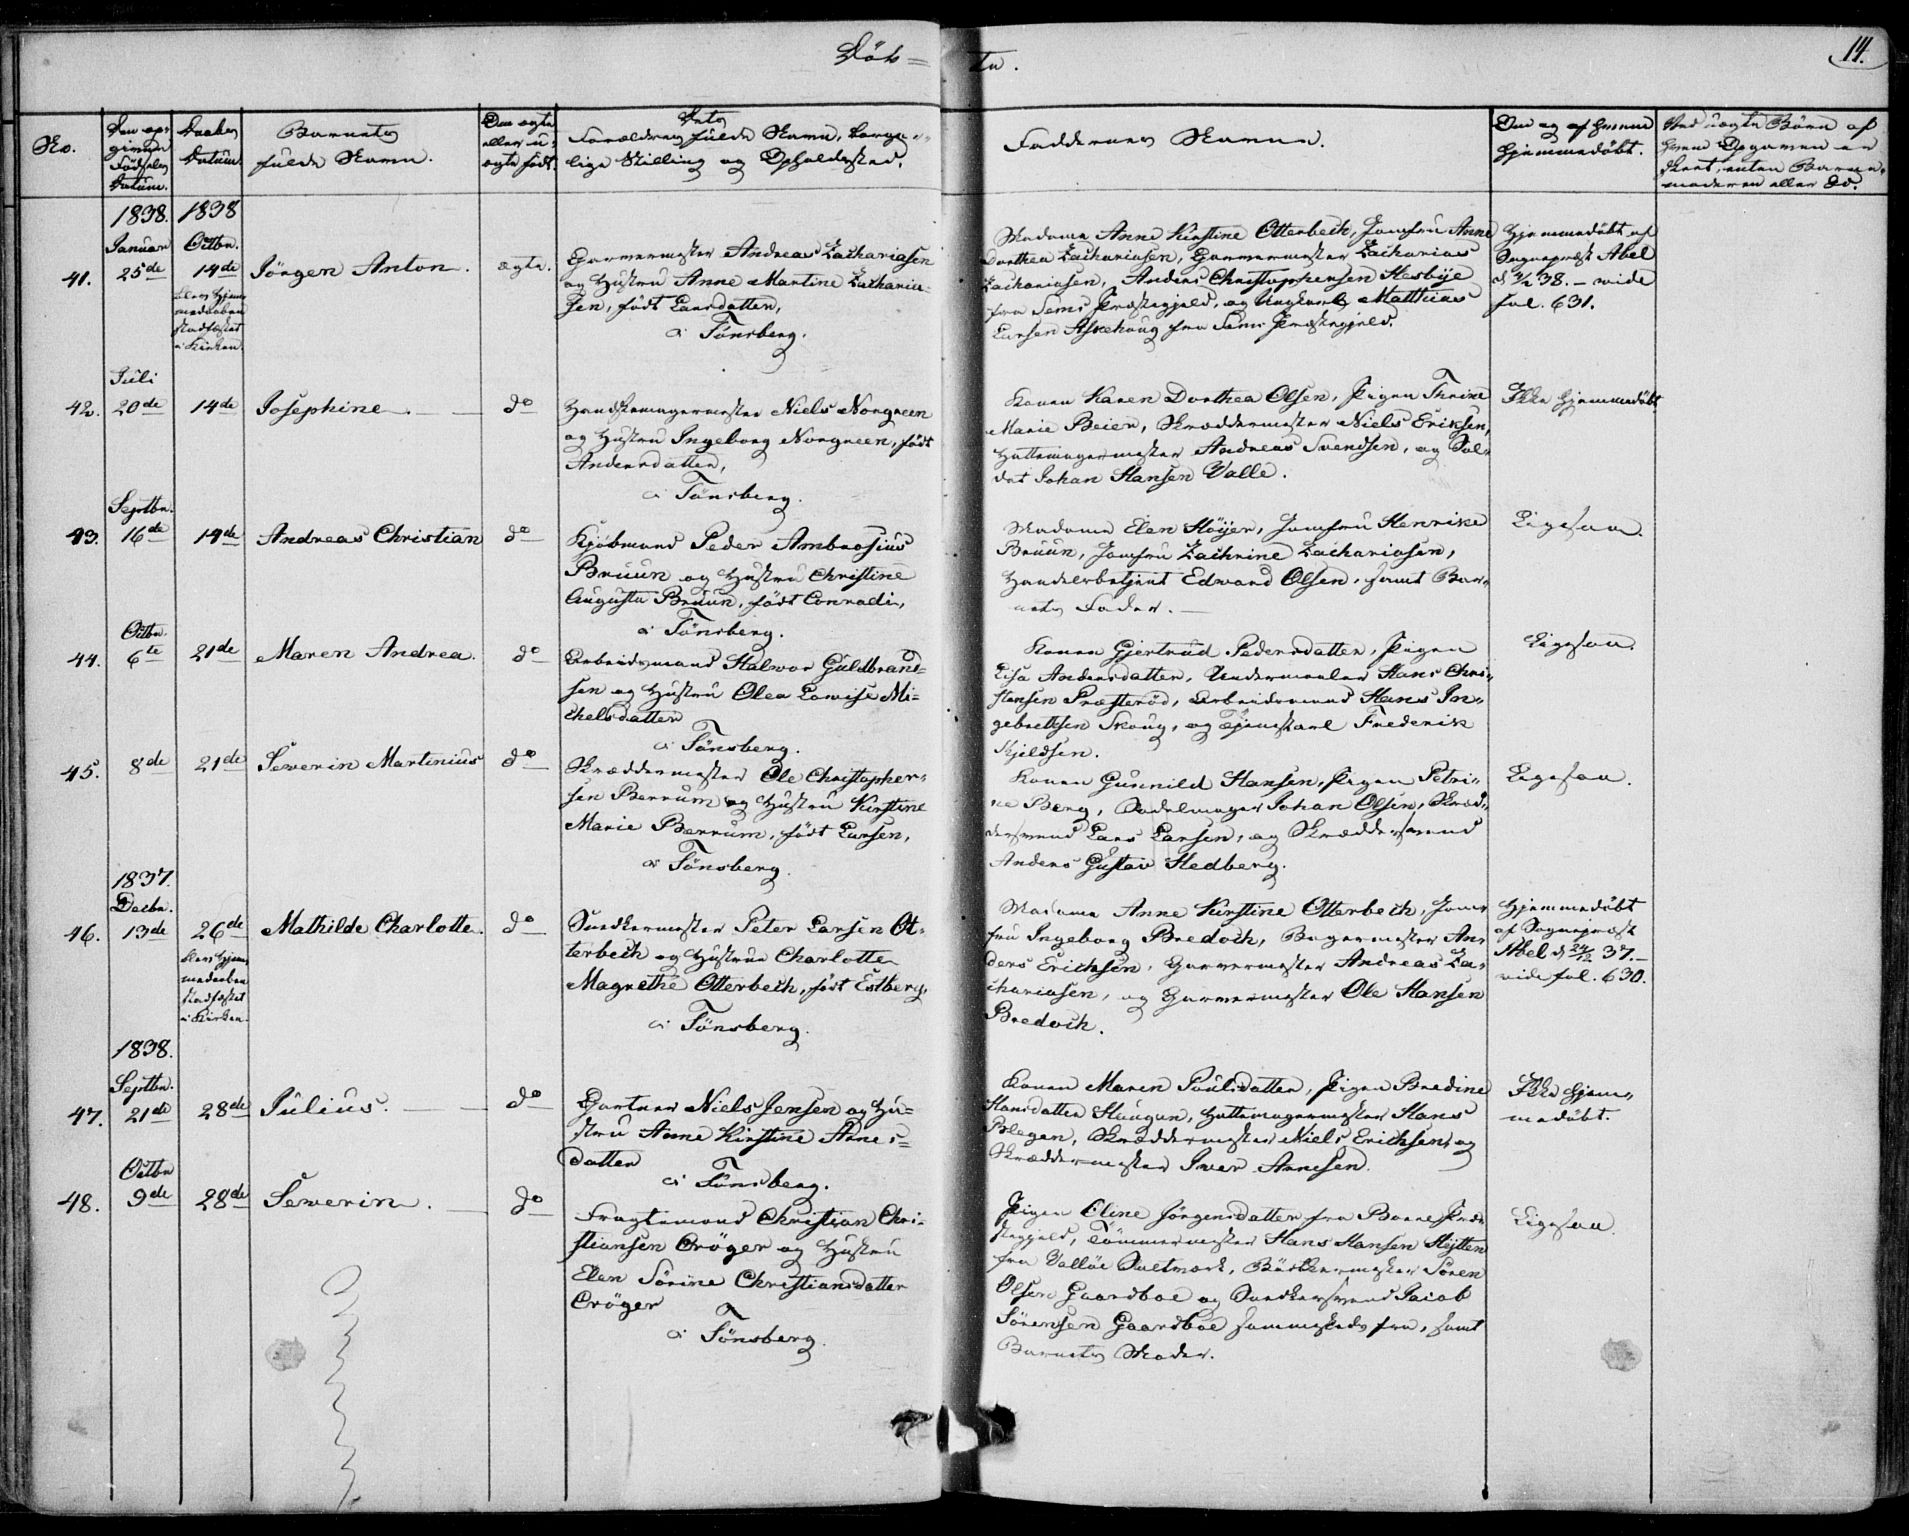 Döb=
te.
14.
No.
Den op-
givne
Fødsels
Datum.
Daabens
Datum.
Barnets
fulde Navn.
Om ægte
eller u-
ægte født.
Dets
Forældres fulde Navn, borger-
lige Stilling og Opholdssted.
Faddernes Navne.
Om og af hvem
hjemmedøbt.
Ved uægte Børn af
hvem Opgaven er
skeet, enten Barne-
moderen eller do.
1838.
Januar
1838
Octbr.
41.
25de
14de
blev hjem-
medaaben
stadfæstet
i Kirken.
Jörgen Anton.
ægte.
Garvermester Andreas Zachariasen
og Hustru Anne Martine Zacharia-
sen, født Larsdatter,
i Tönsberg.
Madame Anne Kirstine Otterbech, Jomfru Anne
Dorthea Zachariasen, Garvermester Zacharias
Zachariasen, Anders Christophersen Hesbye
fra Sems Præstegjeld, og Ungkarl Matthias
Larsen Askehoug fra Sems Præstegjeld.
Hjemmedøbt af
Sognepræst Abel
vide
fol. 631.
Juli
42.
20de
14de
Josephine.
do
Handskemagermester Niels Norgreen
og Hustru Ingeborg Norgreen, født
Andersdatter,
i Tönsberg.
Konen Karen Dorthea Olsen, Pigen Thrine
Marie Beier, Skræddermester Niels Eriksen,
Hattemagermester Andreas Svendsen, og Sol-
dat Johan Hansen Valle.
Ikke hjemmedøbt
Septbr.
43.
16de
14de
Andreas Christian
do
Kjøbmand Peder Ambrosius
Bruun og Hustru Christine
Augusta Bruun, født Conradi,
i Tönsberg.
Madame Elen Höyer, Jomfru Henrike
Bruun, Jomfru Zachrine Zachariasen,
Handelsbetjent Edward Olsen, samt Bar-
nets Fader.
Ligesaa.
Octbr.
44.
6te
21de
Maren Andrea.
do
Arbeidsmand Halwor Guldbrand-
sen og Hustru Olea Lowise Mi-
chelsdatter
i Tönsberg.
Konen Gjertrud Pedersdatter, Pigen
Lisa Andersdatter, Undermaaler Hans Chri-
stensen Præsteröd, Arbeidsmand Hans In-
gebretsen Skoug, og Tjenestkarl Frederik
Kjeldsen.
Ligesaa.
45.
8de
21de
Severin Martinius
do
Skræddermester Ole Christopher-
sen Berrum og Hustru Kirstine
Marie Berrum, født Larsen,
i Tönsberg.
Konen Gunnild Hansen, Pigen Petri-
ne Berg, Sadelmager Johan Olsen, Skræd-
dersvend Lars Larsen, og Skræddersvend
Anders Gustav Hedberg.
Ligesaa.
1837.
Decbr.
46.
13de
26de
blev hjem-
medaaben
stadfæstet
i Kirken.
Mathilde Charlotte.
do
Snedkermester Peter Larsen Ot-
terbech og Hustrue Charlotte
Magrethe Otterbech, født Estberg,
i Tönsberg.
Madame Anne Kirstine Otterbech, Jom-
fru Ingeborg Bredoch, Bagermester An-
ders Erichsen, Garvermester Andreas Za-
chariasen, og Garvermester Ole Hansen
Bredoch.
Hjemmedøbt
af Sognepræst
Abel d 24/12 37.-
vide fol. 630.
1838.
Septbr.
47.
21de
28de
Julius.
do
Gartner Niels Jensen og Hu-
stru Anne Kirstine Arnes-
datter
i Tönsberg.
Konen Maren Poulsdatter, Pigen Bredine
Hansdatter Haugan, Hattemagermester Hans
Blegen, Skræddermester Niels Erichsen, og
Skræddermester Iver Arnesen.
Ikke hjem-
medøbt.
Octbr
48.
9de
28de
Severin.
do
Fragtemand Christian Chri-
stiansen Cröger og Hustru
Elen Sörine Christiansdatter
Cröger
i Tönsberg.
Pigen Oline Jörgensdatter fra Borre Præ-
stegjeld, Tömmermester Hans Hansen Hytten
fra Valløe Saltværk, Bödkermester Sören
Olsen Gaardboe og Snedkersvend Jacob
Sörensen Gaardboe sammesteds fra, samt
Barnets Moder.
Ligesaa.